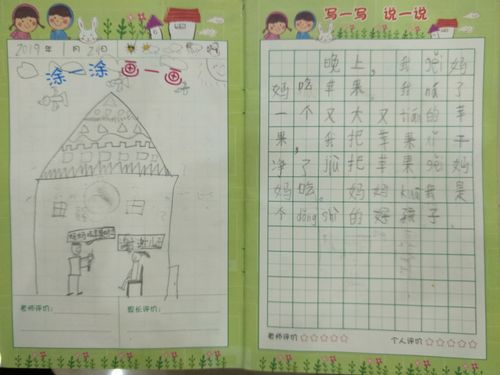 2019年1月2日
涂一涂 画一画
老师评价:
家长评价:
写一写 说一说
晚上,我给妈
妈吃苹果。我
一个又大又tián的苹
果,我把苹果
净了jiù把苹果给妈
妈吃。妈妈kuā我是
个dǒng shì的好孩子。
老师评价:☆☆☆☆☆
个人评价:☆☆☆☆☆